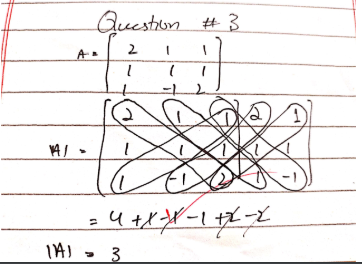 Question # 3
A = [ 2 1 1
1 1 1
1 -1 2 ]
|A| = [ 2 1 1 | 2 1
1 1 1 | 1 1
1 -1 2 | 1 -1 ]
= 4 + 1 - 1 - 1 + 2 - 2
|A| = 3